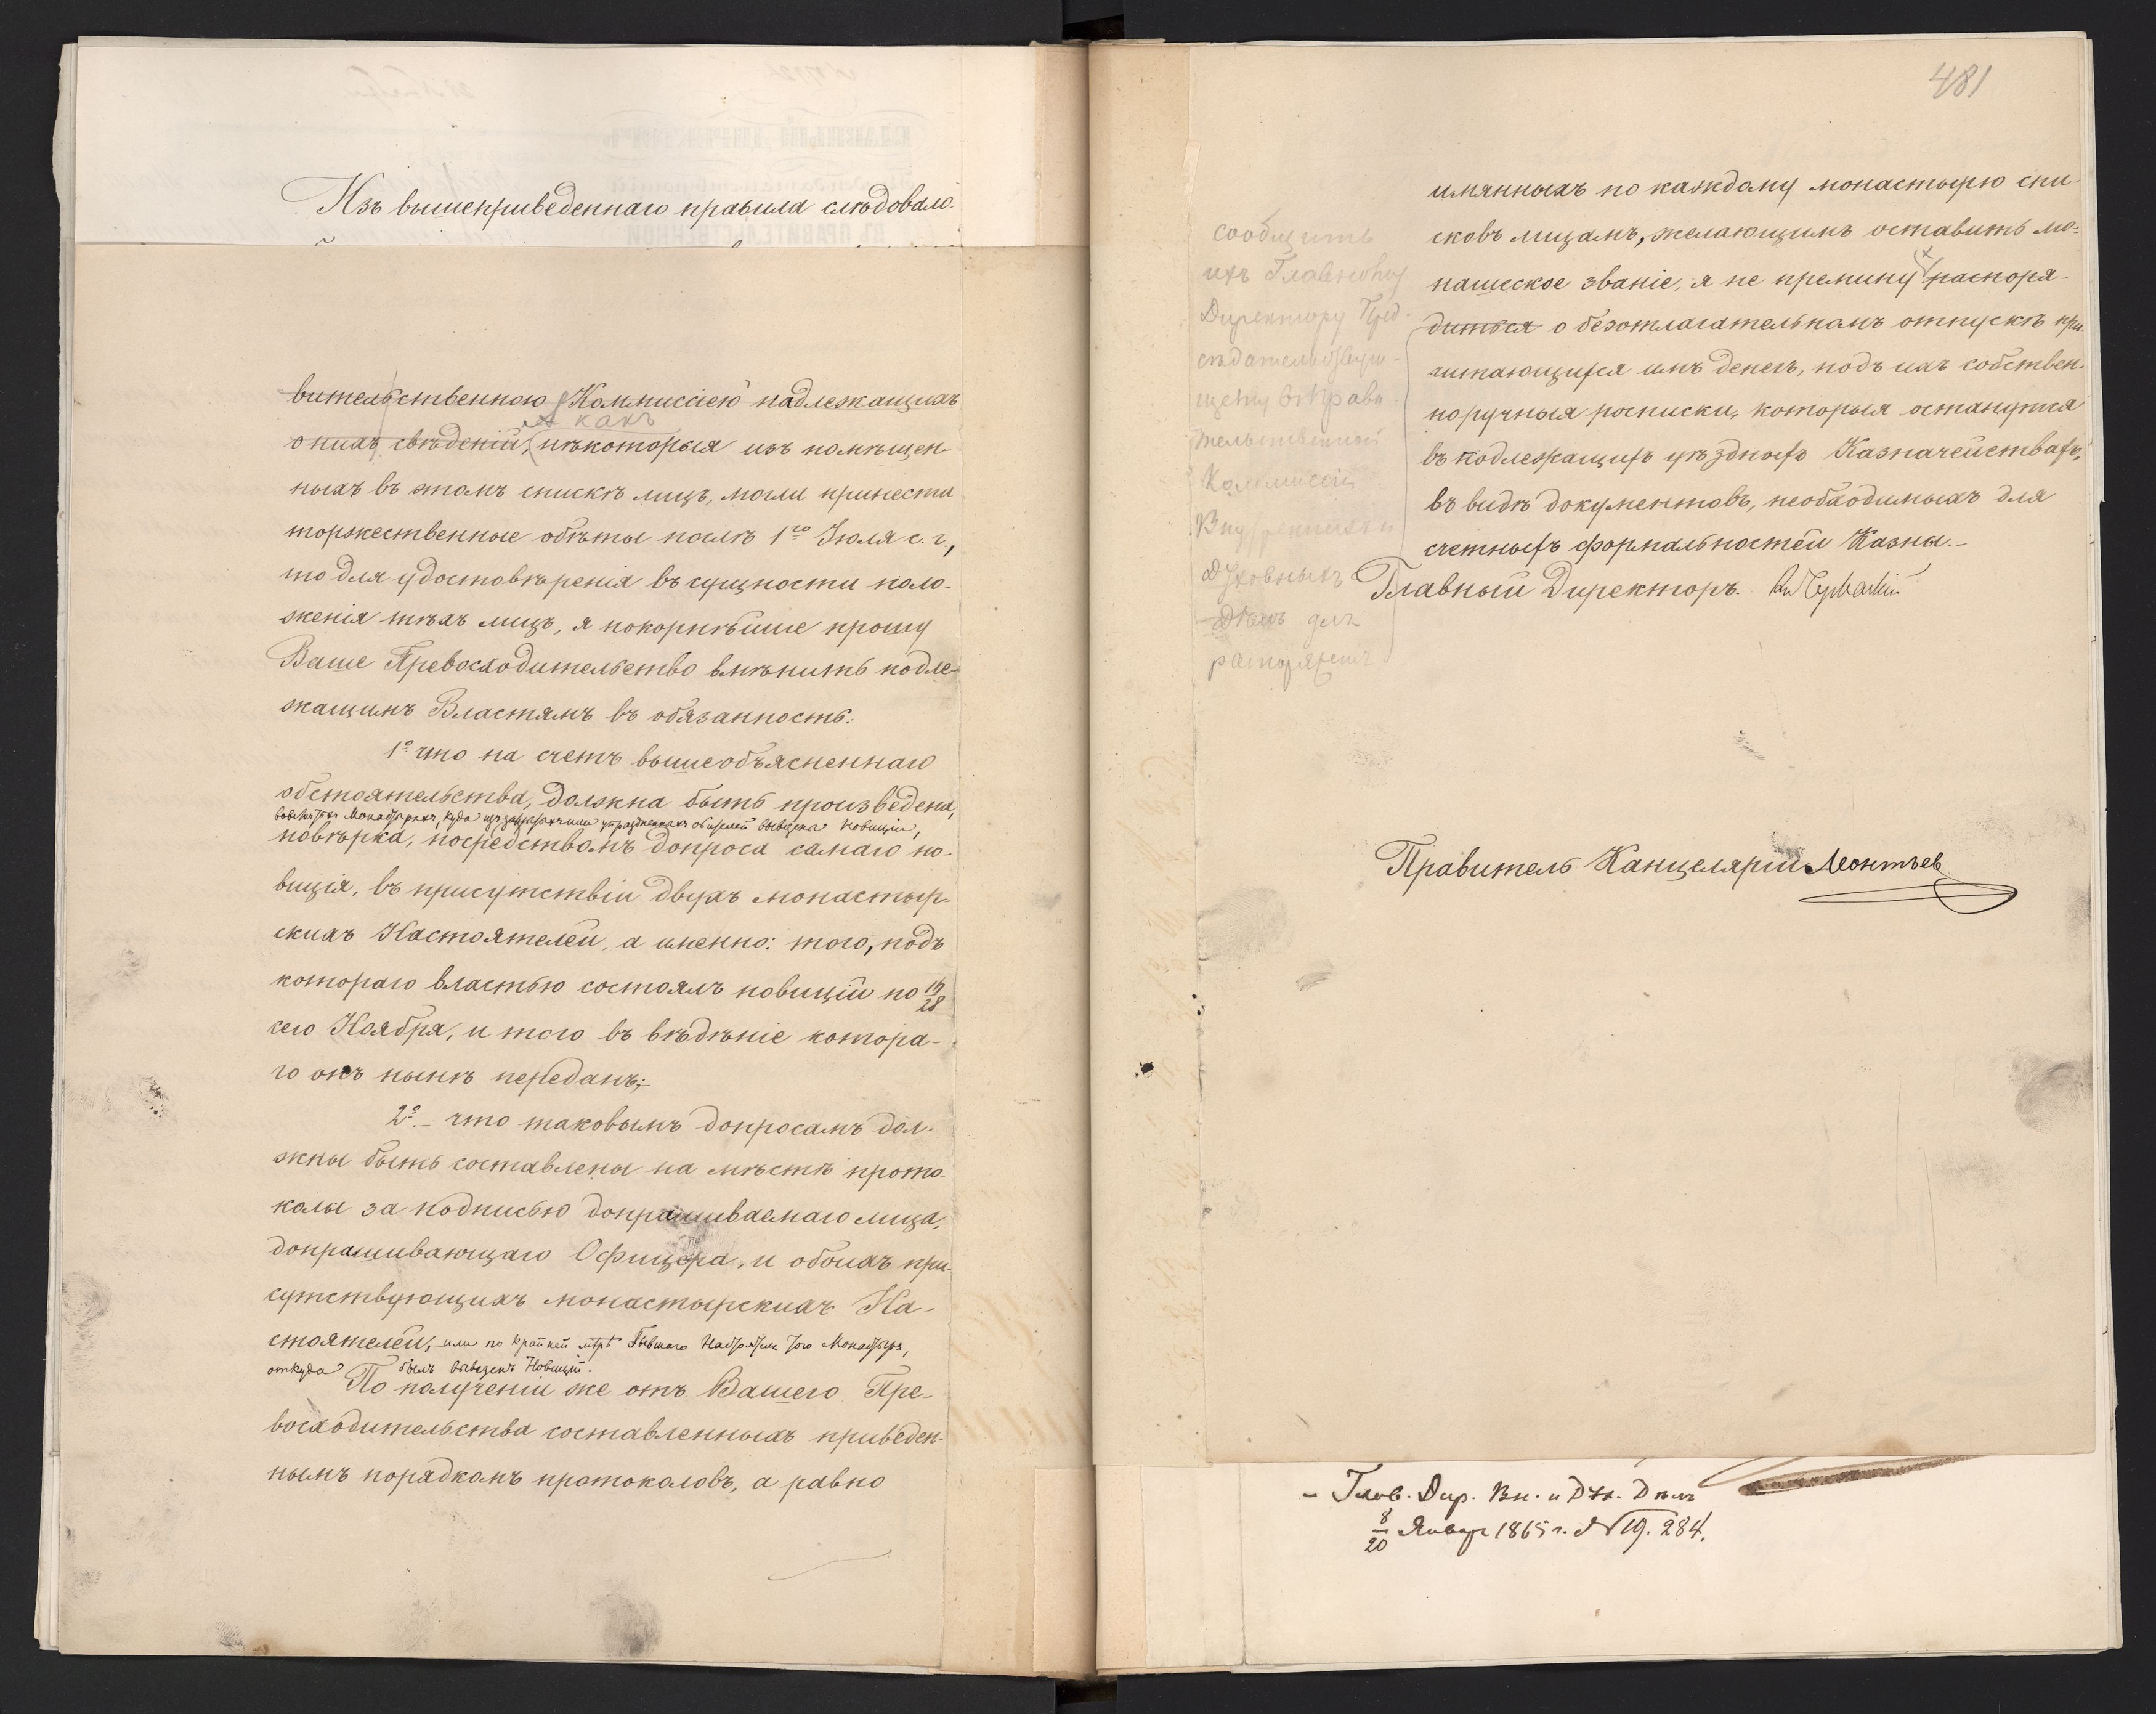 Изъ вышеприведеннаго правила слѣдовало-
вительственною Коммиссіею надлежащихъ
какъ
о нихъ свѣденій, нѣкоторыя изъ помѣщен-
ныхъ въ этомъ спискѣ лицъ, могли принести
торжественные обѣты послѣ 1го Іюля с. г.,
то для удостовѣренія въ сущности поло-
женія тѣхъ лицъ, я покорнѣйше прошу
Ваше Превосходительство вмѣнить подле-
жащимъ Властямъ въ обязанность:
1о что на счетъ вышеобъясненнаго
обстоятельства, должна быть произведена,
Монастыряхъ, куда изъ упраздненныхъ обителей вывезены Новиціи,
повѣрка, посредствомъ допроса самаго но-
виція, въ присутствіи двухъ монастыр-
скихъ Настоятелей, а именно: того, подъ
котораго властью состоялъ новицій по 16/28
сего Ноября, и того въ вѣдѣніе котора-
го онъ нынѣ переданъ;-
2о.- что таковымъ допросамъ дол-
жны быть составлены на мѣстѣ прото-
колы за подписью допрашиваемаго лица,
допрашивающаго Офицера, и обоихъ при-
сутствующихъ монастырскихъ На-
стоятелей, или по крайней мѣрѣ бывшаго Настоятеля того Монастыря,
откуда былъ вывезенъ Новицій.
По полученіи же отъ Вашего Пре-
восходительства составленныхъ приведен-
нымъ порядкомъ протоколовъ, а равно
481
имянныхъ по каждому монастырю спи-
сковъ лицамъ, желающимъ оставить мо-
нашеское званіе, я не премину распоря-
диться о безотлагательномъ отпускѣ при-
читающихся имъ денегъ, подъ ихъ собствен-
норучныя росписки, которыя останутся
въ подлежащихъ уѣздныхъ Казначействахъ,
въ видѣ документовъ, необходимыхъ для
счетныхъ формальностей Казны.-
сообщить
ихъ Главному
Директору Пред-
сѣдательствую-
щему въ Прави-
тельственной
Коммиссіи
Внутреннихъ и
Духовныхъ
Дѣлъ для
Главный Директоръ.
Правитель Канцеляріи Леонтьев
- Глав. Дир. Вн. и Дух. Дѣлъ
8/20 Январ 1865 г. № 19.284.